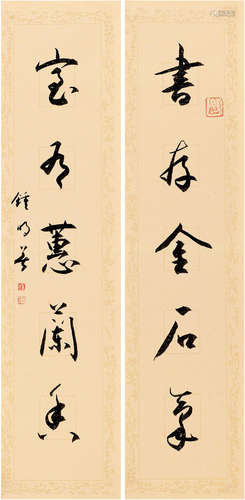 書存金石氣
室有蕙蘭香
鍾明善